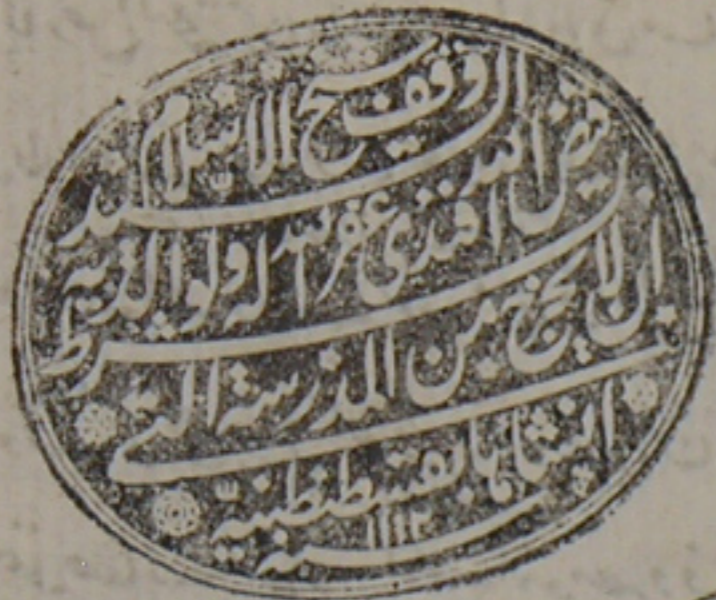 وقف شيخ الاسلام السيد
فيض الله افندى غفر الله له ولوالديه بشرط
ان لا يخرج من المدرسة التي
انشاها بقسطنطنية
سنه ١١١٢